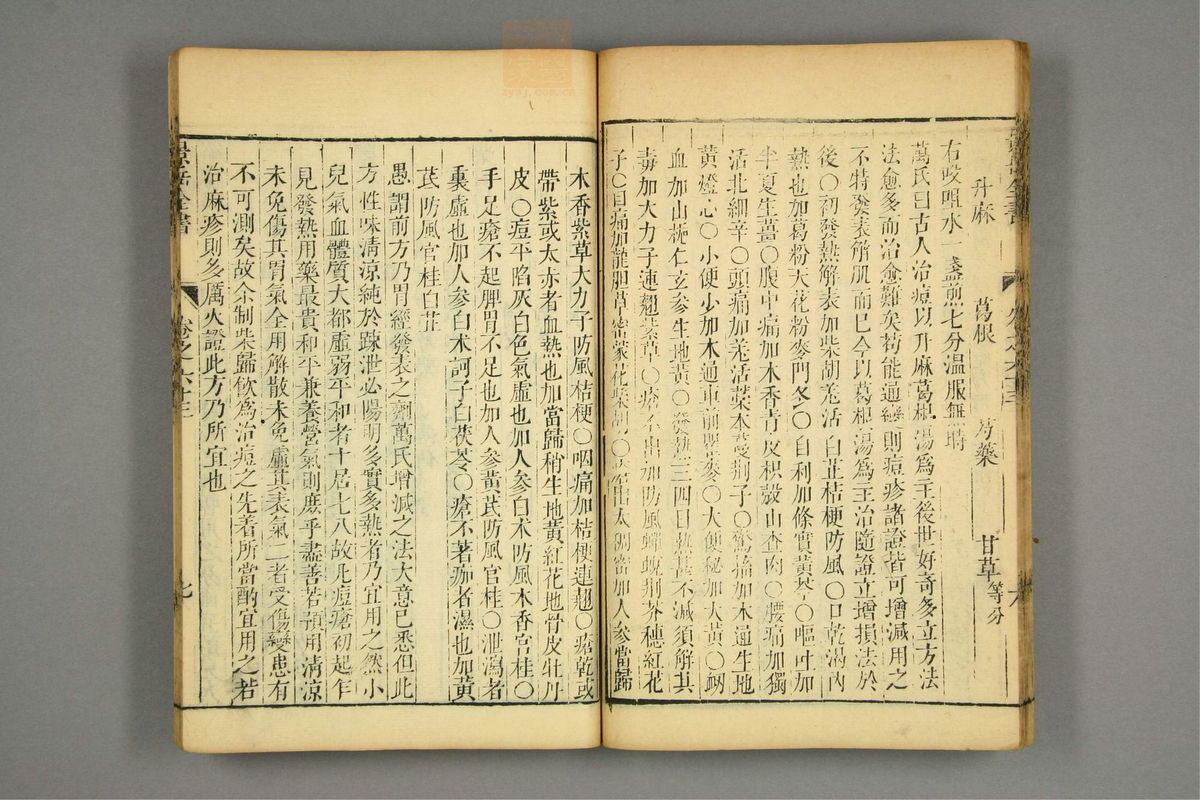 升麻 葛根 芍藥 甘草等分
右㕮咀水一盞煎七分溫服無時
萬氏曰古人治痘以升麻葛根湯爲主後世好奇多立方法
法愈多而治愈難矣苟能通變則痘疹諸證皆可增減用之
不特發表解肌而已今以葛根湯爲主治隨證立增損法於
後○初發熱解表加柴胡羌活白芷桔梗防風○口乾渴內
熱也加葛粉天花粉麥門冬○自利加條實黃芩○嘔吐加
半夏生薑○腹中痛加木香青皮枳殼山查肉○腰痛加獨
活北細辛○頭痛加羌活藁本蔓荆子○驚搐加木通生地
黃燈心○小便少加木通車前瞿麥○大便秘加大黃○衂
血加山梔仁玄參生地黃○發熱三四日熱甚不減須解其
毒加大力子連翹紫草○瘡不出加防風蟬蛻荆芥穗紅花
子○目痛加龍胆草密蒙花柴胡○瘡出太稠密加人參當歸
木香紫草大力子防風桔梗○咽痛加桔梗連翹○瘡乾或
帶紫或太赤者血熱也加當歸稍生地黃紅花地骨皮牡丹
皮○痘平陷灰白色氣虛也加人參白术防風木香官桂○
手足瘡不起脾胃不足也加人參黃芪防風官桂○泄瀉者
裏虛也加人參白术訶子白茯苓○瘡不著痂者濕也加黃
芪防風官桂白芷
愚謂前方乃胃經發表之劑萬氏增減之法大意已悉但此
方性味清涼純於踈泄必陽明多實多熱者乃宜用之然小
兒氣血體質大都虛弱平和者十居七八故凡痘瘡初起乍
見發熱用藥最貴和平兼養營氣則庶乎盡善若預用清涼
未免傷其胃氣全用解散未免虛其表氣二者受傷變患有
不可測矣故余制柴歸飲爲治痘之先著所當酌宜用之若
治麻疹則多厲火證此方乃所宜也
景岳全書 卷之六十三 七